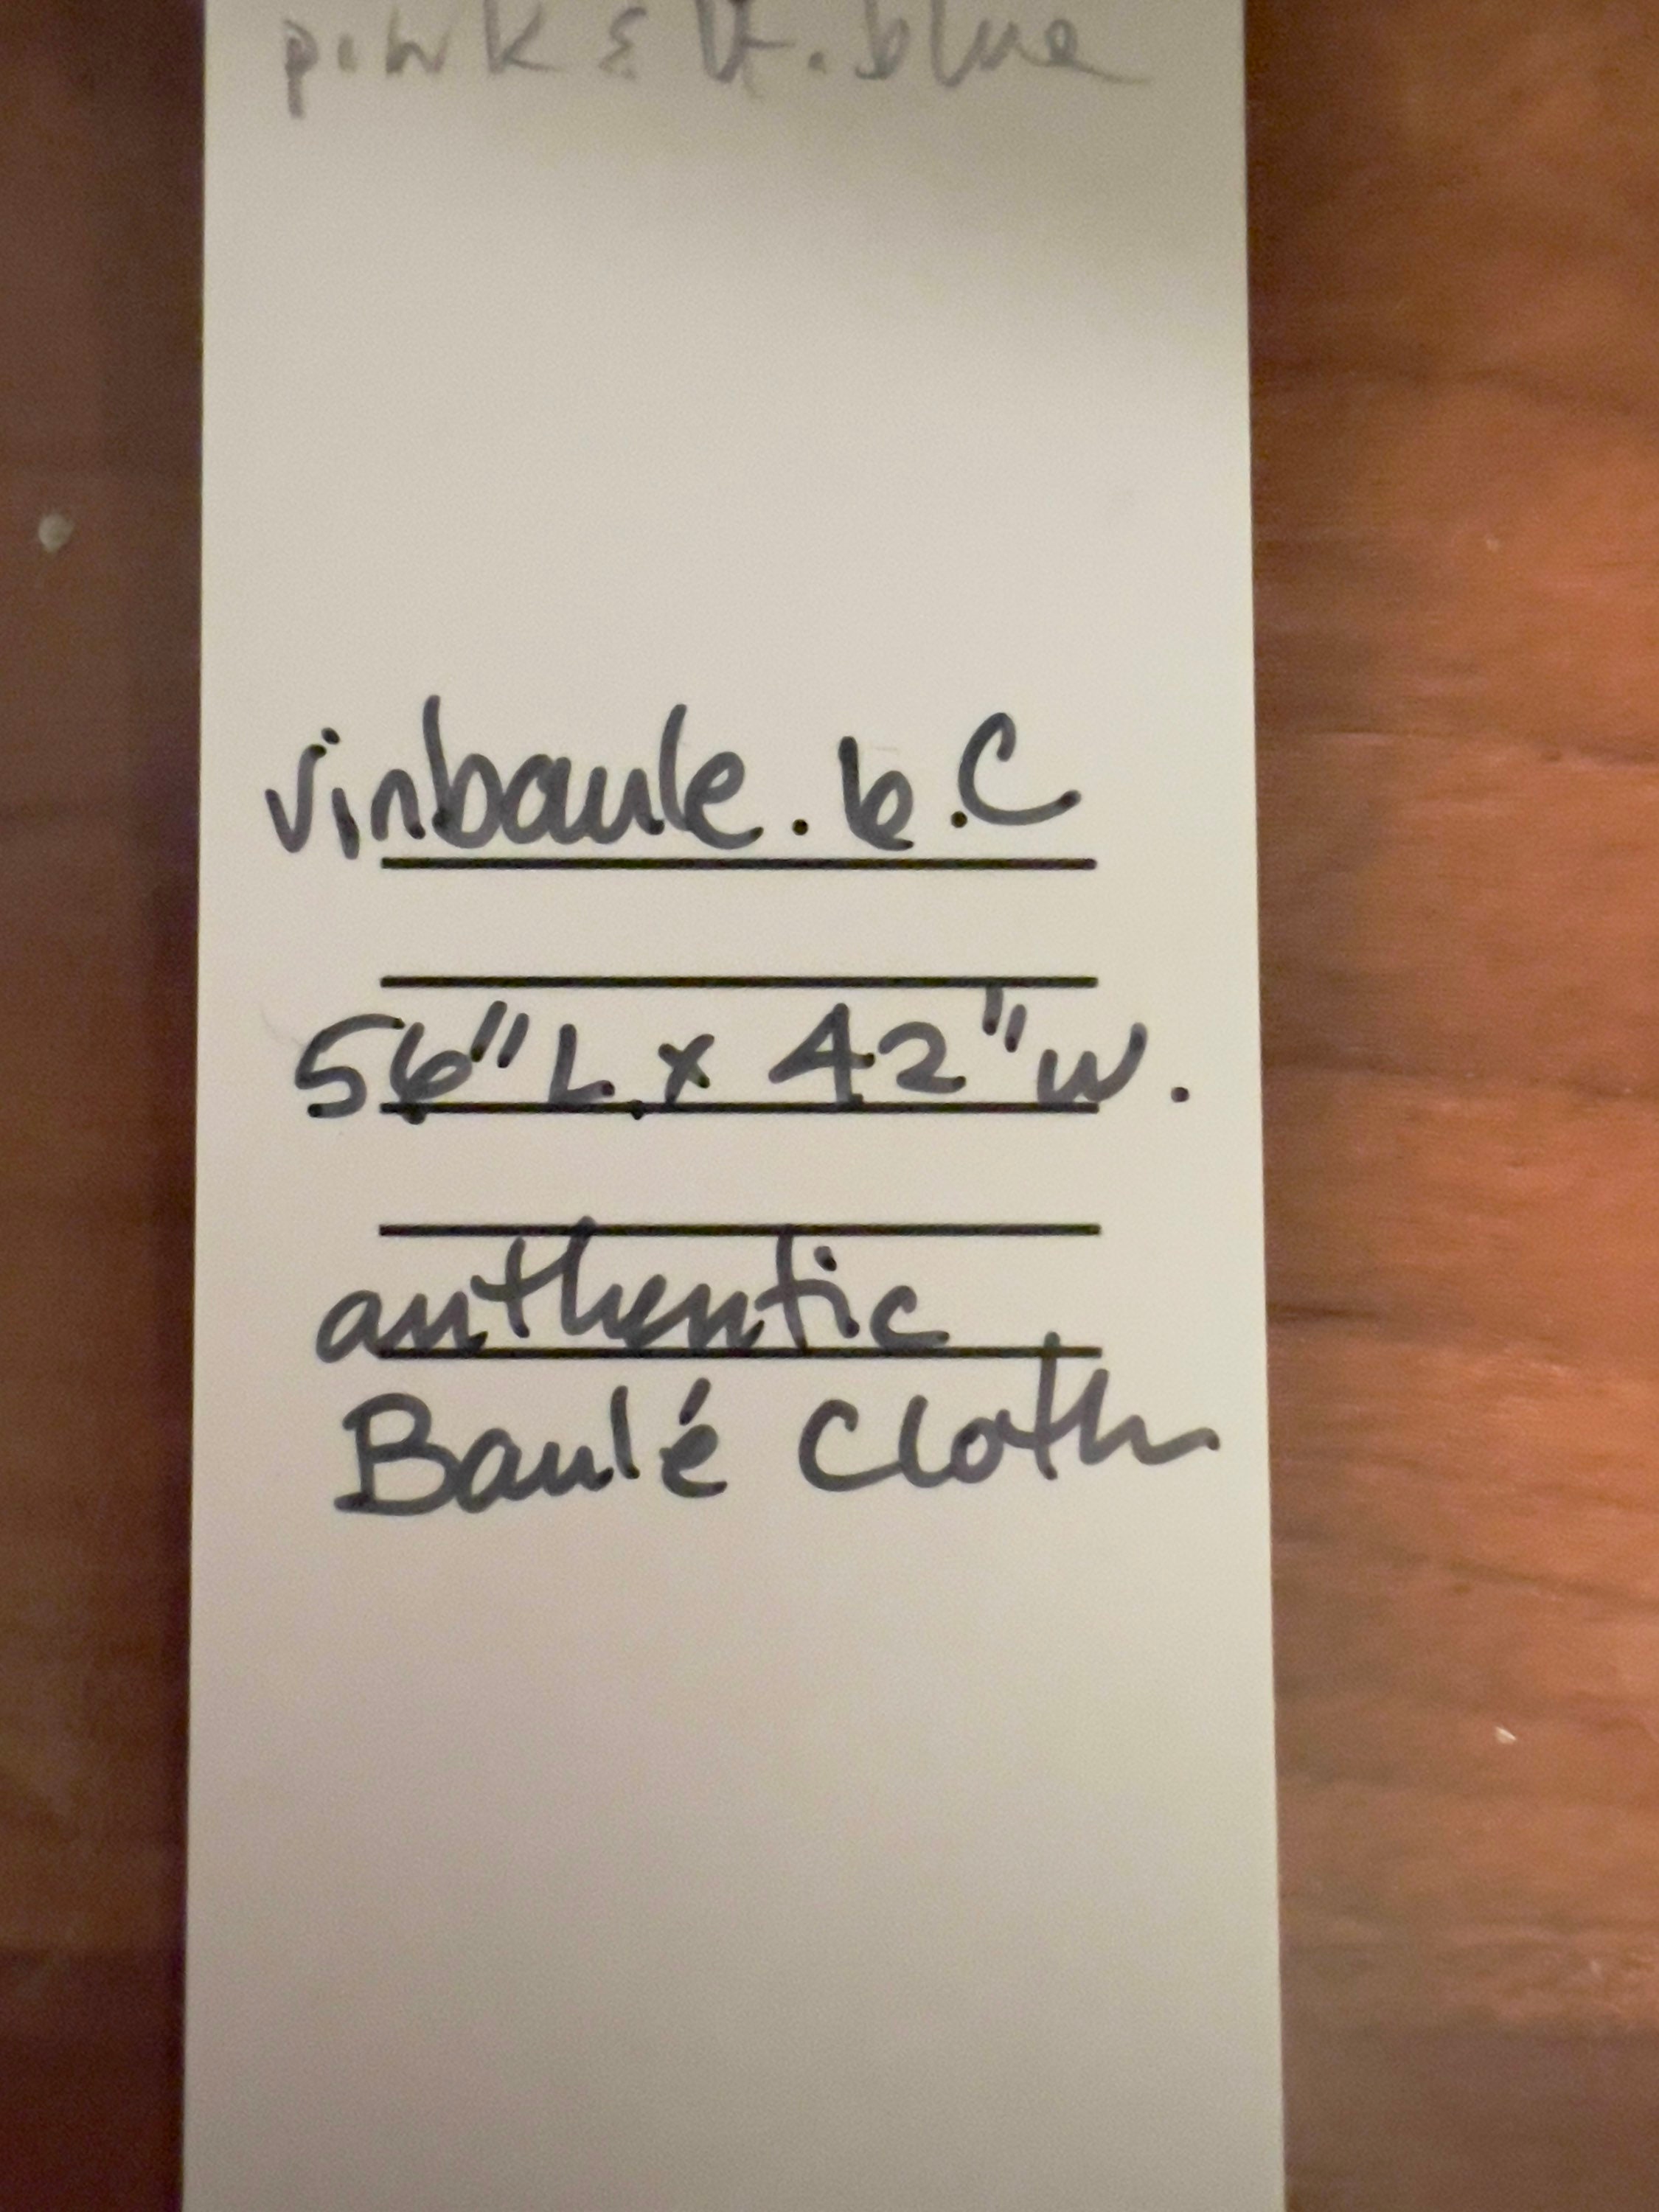 pink & lt. blue
vinbaule.b.C
56" L x 42" W.
authentic
Baulé Cloth